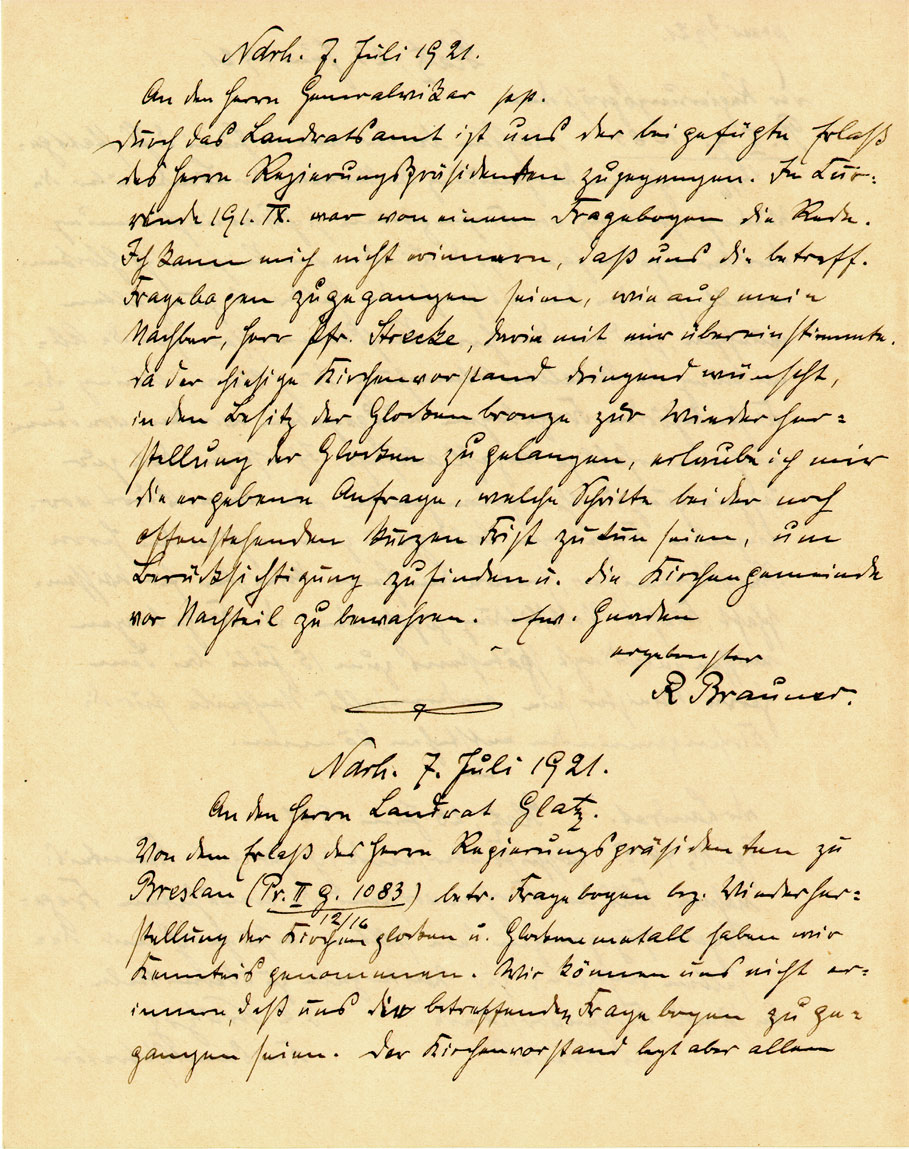 Ndrh. 7. Juli 1921.
An den Herrn Generalvikar
Durch das Landratsamt ist uns der beigefügte Erlaß
des Herrn Regierungspräsidenten zugegangen. In Cur-
rende 191. IX. war von einem Fragebogen die Rede.
Ich kann mich nicht erinnern, daß uns die betreff.
Fragebogen zugegangen seien, wie auch mein
Nachbar, Herr Pfr. Strecke, darin mit mir übereinstimmte.
Da der hiesige Kirchenvorstand dringend wünscht,
in den Besitz der Glockenbronze zur Wiederher-
stellung der Glocken zu gelangen, erlaube ich mir
die ergebene Anfrage, welche Schritte bei der noch
offenstehenden kurzen Frist zu tun seien, um
Berücksichtigung zu finden u. die Kirchengemeinde
vor Nachteil zu bewahren. Ew. Gnaden
ergebenster
R Brauner.
Ndrh. 7. Juli 1921.
An den Herrn Landrat Glatz.
Von dem Erlaß des Herrn Regierungspräsidenten zu
Breslau (Pr. II g. 1083) betr. Fragebogen bez. Wiederher-
12/16
stellung der Kirchenglocken u. Glockenmetall haben wir
Kenntnis genommen. Wir können uns nicht er-
innern, daß uns die betreffenden Fragebogen zuge-
gangen seien. Der Kirchenvorstand legt aber allem